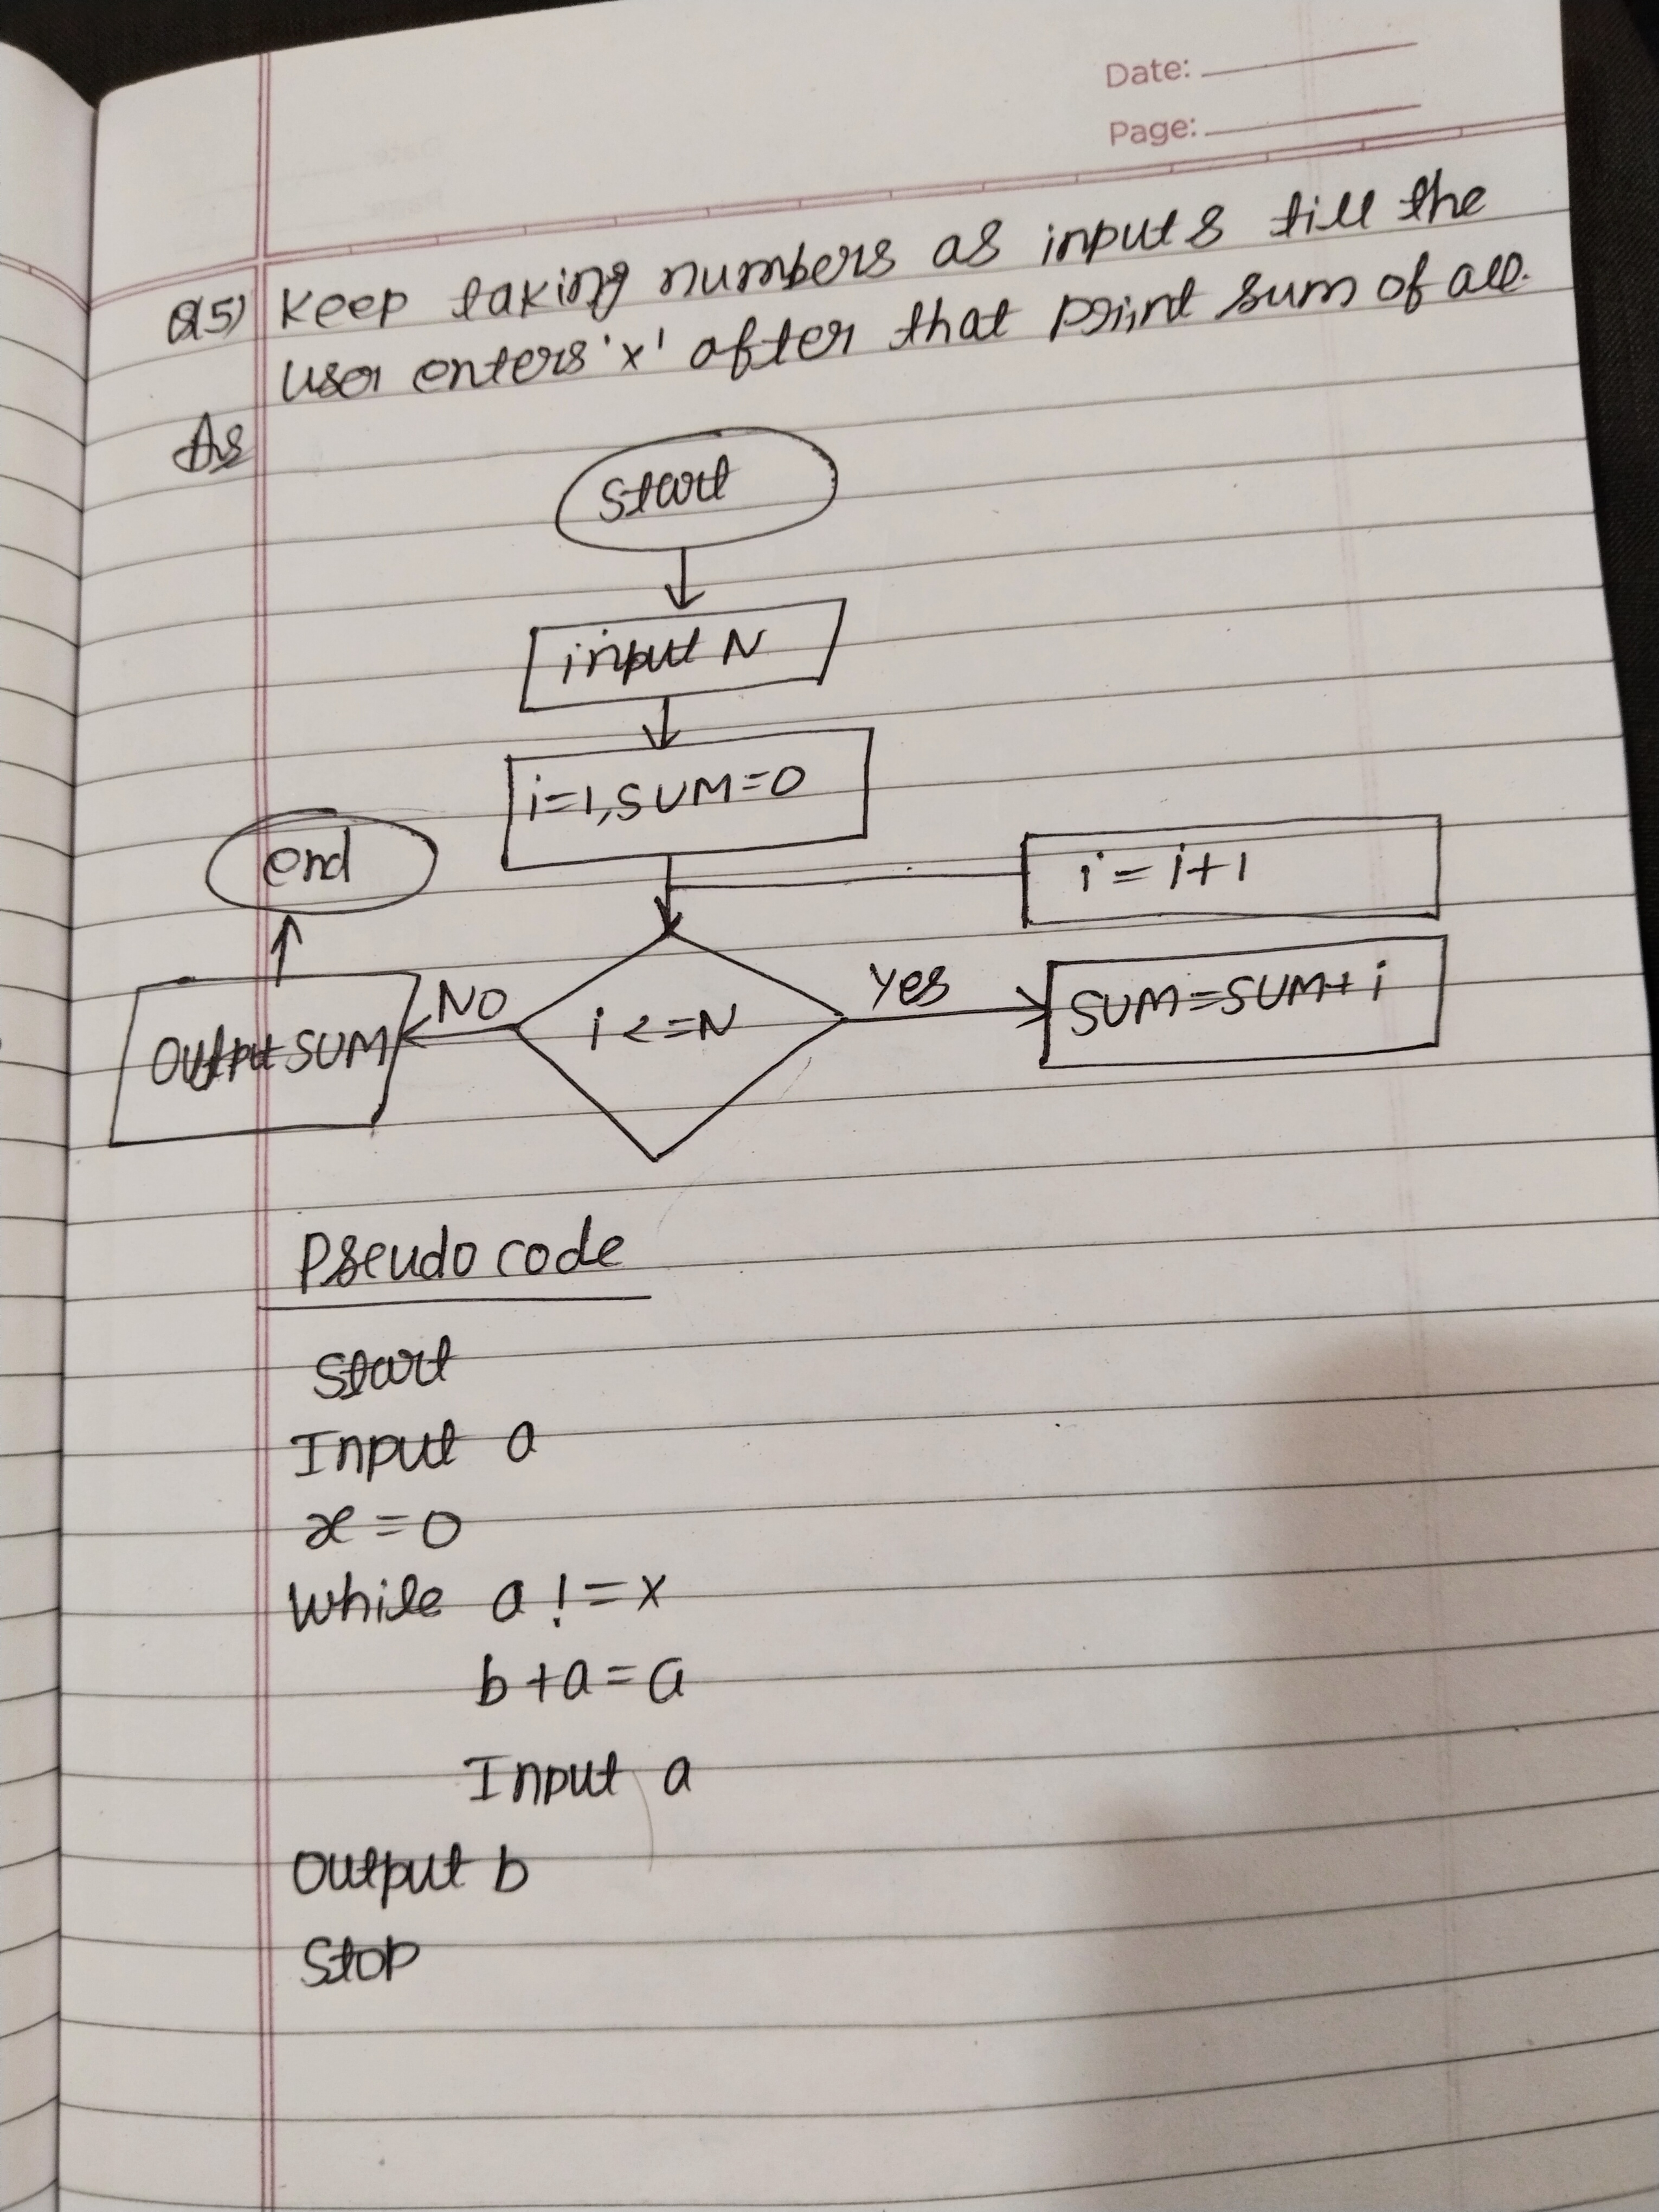 Date:
Page:
Q5) Keep taking numbers as inputs till the
user enters 'x' after that print sum of all.
As
Start
input N
i=1, SUM=0
end
i = i+1
NO
i <=N
Yes
SUM=SUM+i
Output SUM
Pseudo code
Start
Input a
x=0
While a != x
b+a=a
Input a
Output b
Stop